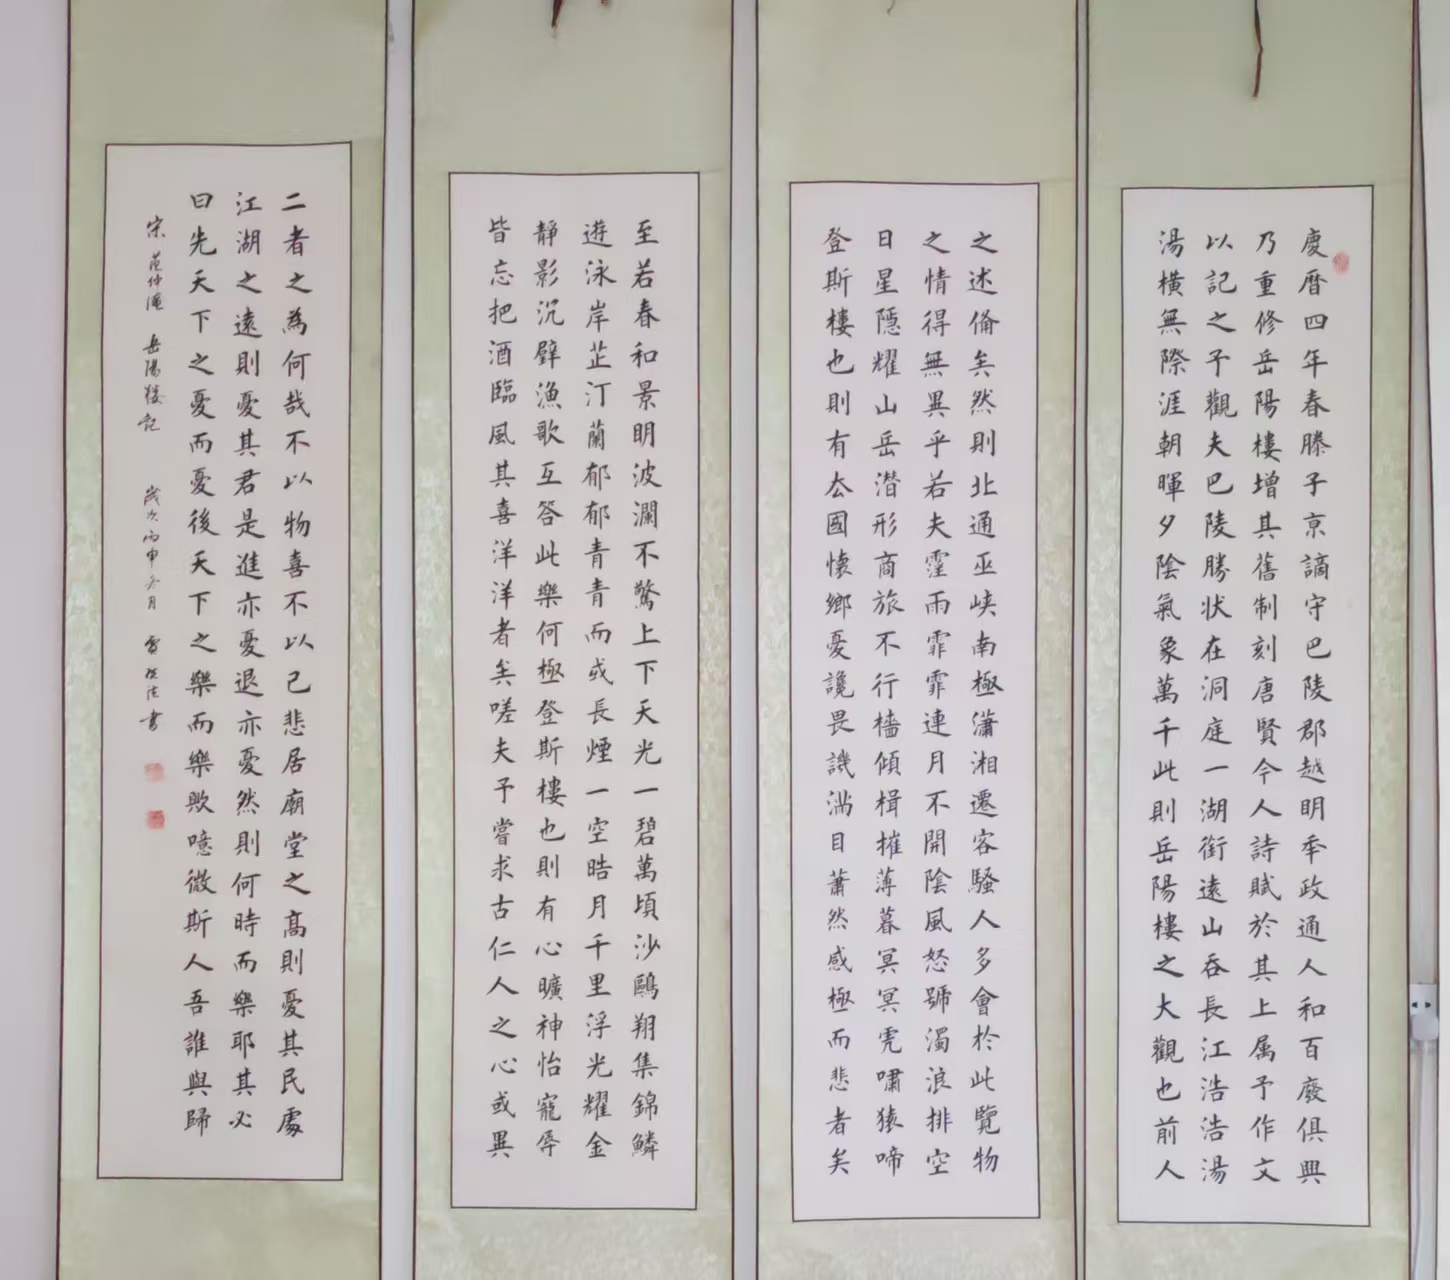 慶曆四年春滕子京謫守巴陵郡越明年政通人和百廢俱興
乃重修岳陽樓增其舊制刻唐賢今人詩賦於其上属予作文
以記之予觀夫巴陵勝状在洞庭一湖銜遠山吞長江浩浩湯
湯橫無際涯朝暉夕陰氣象萬千此則岳陽樓之大觀也前人
之述俻矣然則北通巫峡南極瀟湘遷客騷人多會於此覽物
之情得無異乎若夫霪雨霏霏連月不開陰風怒號濁浪排空
日星隱耀山岳潜形商旅不行檣傾楫摧薄暮冥冥虎嘯猿啼
登斯樓也則有去國懷鄉憂讒畏譏滿目蕭然感極而悲者矣
至若春和景明波瀾不驚上下天光一碧萬頃沙鷗翔集錦鱗
遊泳岸芷汀蘭郁郁青青而或長煙一空皓月千里浮光耀金
靜影沉璧漁歌互答此樂何極登斯樓也則有心曠神怡寵辱
皆忘把酒臨風其喜洋洋者矣嗟夫予嘗求古仁人之心或異
二者之為何哉不以物喜不以己悲居廟堂之高則憂其民處
江湖之遠則憂其君是進亦憂退亦憂然則何時而樂耶其必
曰先天下之憂而憂後天下之樂而樂歟噫微斯人吾誰與歸
宋 范仲淹 岳陽樓記 歲次丙申冬月 書